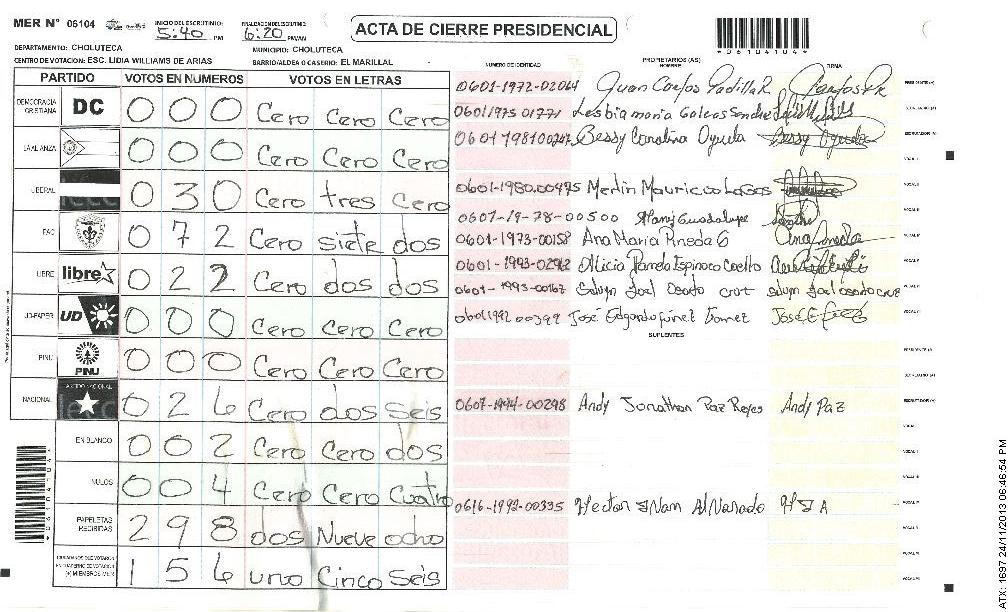 MER N° 06104 INICIO DEL ESCRUTINIO: 5:40 PM FINALIZACION DEL ESCRUTINIO: 6:20 PM/AM ACTA DE CIERRE PRESIDENCIAL
*06104104*
DEPARTAMENTO: CHOLUTECA MUNICIPIO: CHOLUTECA
CENTRO DE VOTACION: ESC. LIDIA WILLIAMS DE ARIAS BARRIO/ALDEA O CASERIO: EL MARILLAL
PARTIDO VOTOS EN NUMEROS VOTOS EN LETRAS
NUMERO DE IDENTIDAD PROPIETARIOS (AS) NOMBRE FIRMA
DEMOCRACIA CRISTIANA DC 0 0 0 Cero Cero Cero
LA ALIANZA 0 0 0 Cero Cero Cero
LIBERAL 0 3 0 Cero tres Cero
PAC 0 7 2 Cero siete dos
LIBRE libre 0 2 2 Cero dos dos
UD-FAPER UD 0 0 0 Cero Cero Cero
PINU PINU 0 0 0 Cero Cero Cero
NACIONAL PARTIDO NACIONAL 0 2 6 Cero dos Seis
EN BLANCO 0 0 2 Cero Cero dos
NULOS 0 0 4 Cero Cero Cuatro
PAPELETAS RECIBIDAS 2 9 8 dos Nueve ocho
CIUDADANOS QUE VOTARON EN CUADERNO DE VOTACION (+) MIEMBROS MER 1 5 6 uno Cinco Seis
0601-1972-02064 Juan Carlos Padilla R.
0601 1975 01771 Lesbia maria Galeas
Bessy Carolina
0601-1980-00475 Merlin Mauricio Lagos
0607-19-78-00500 Guadalupe
0601-1973-00158 Ana Maria Pineda G
Alicia Espinoza Coello
0601-1993-00167 Joel cruz
0601 1992 00399 José Edgardo Gomez
SUPLENTES
0607-1994-00298 Andy Jonathan Paz Reyes Andy Paz
0616-1992-00335 Hector Alvarado
*06104104*
ATX: 1697 24/11/2013 06:46:54 PM